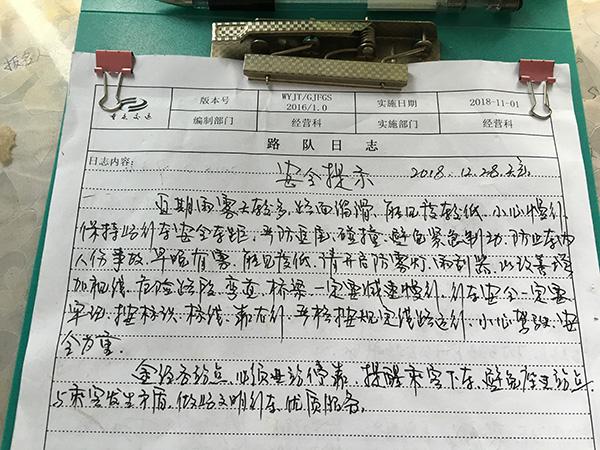 重庆交运
版本号 WYJT/GJFGS 2016/1.0 实施日期 2018-11-01
编制部门 经营科 实施部门 经营科
路队日志
日志内容:
安全提示 2018.12.28.
近期雨雾天较多,路面湿滑,能见度较低,小心慢行,
保持跟行车安全车距,严防追尾,碰撞,避免紧急制动,防止车内
人伤事故,早晚有雾,能见度低,请开启防雾灯,雨刮器,以改善
加视线,危险路段,弯道,桥梁一定要减速慢行,行车安全一定要
牢记,按标识,标线,靠右行,严格按规定线路运行,小心驾驶,安
全为重。
途经各站点,必须进站停靠,提醒乘客下车,避免站点
与乘客发生矛盾,做好文明行车,优质服务。